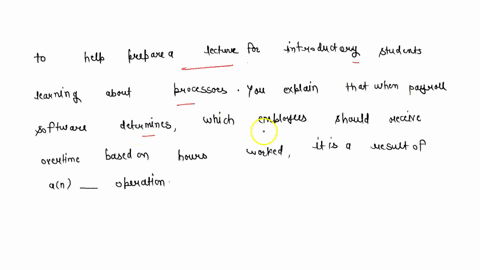 to help prepare a lecture for introductory students
learning about processors. You explain that when payroll
software determines, which employees should receive
overtime based on hours worked, it is a result of
a(n) __ operation.